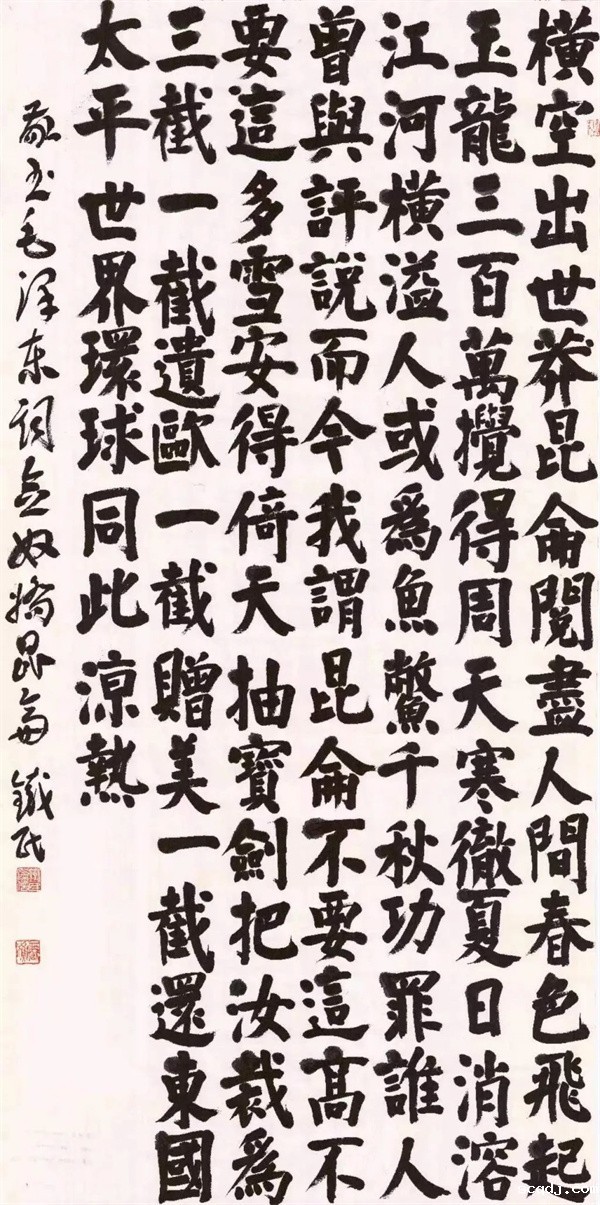 橫空出世莽昆侖閱盡人間春色飛起
玉龍三百萬攪得周天寒徹夏日消溶
江河橫溢人或爲魚鱉千秋功罪誰人
曾與評説而今我謂昆侖不要這髙不
要這多雪安得倚天抽寶劍把汝裁爲
三截一截遺歐一截贈美一截還東國
太平世界環球同此涼熱
敬書毛澤東詞念奴嬌昆侖 鐵民